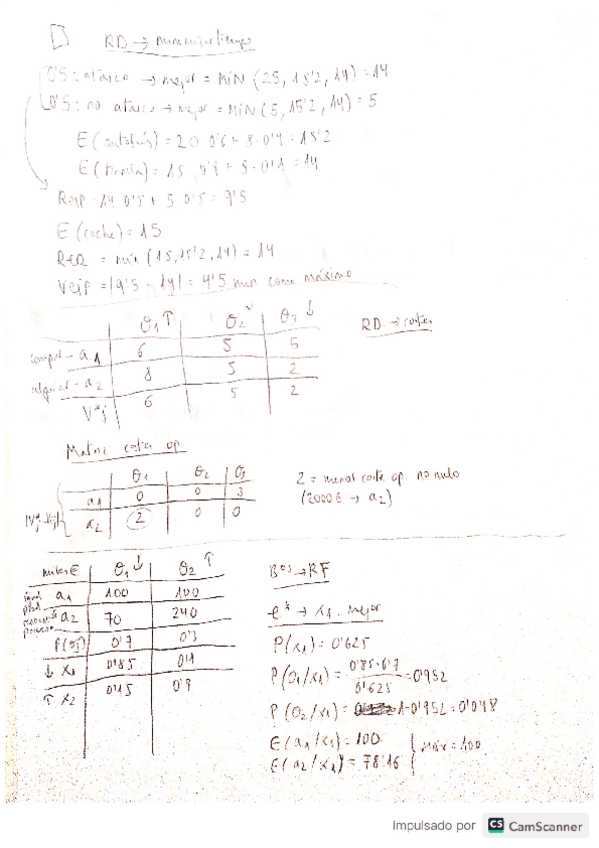 RD → minimizar tiempo
0'5: atasco → mejor = MIN (25, 15'2, 14) = 14
0'5: no atasco → mejor = MIN (5, 15'2, 14) = 5
E (autobús) = 20·0'6 + 8·0'4 = 15'2
E (tranvía) = 15·0'9 + 5·0'1 = 14
REIP = 14·0'5 + 5·0'5 = 9'5
E (coche) = 15
RER = min (15, 15'2, 14) = 14
VEIP = |9'5 - 14| = 4'5 min como máximo
θ1 ↑ θ2 θ3 ↓
RD → costes
comprar - a1 6 5 5
alquilar - a2 8 5 2
V*j 6 5 2
Matriz coste op
θ1 θ2 θ3
a1 0 0 3
a2 2 0 0
2 = menor coste op. no nulo
(2000€ → a2)
miles € θ1 ↓ θ2 ↑
a1 100 100
a2 70 240
P(θj) 0'7 0'3
↓ X1 0'85 0'1
↑ X2 0'15 0'9
Bº → RF
e* → X1. mejor
P(X1) = 0'625
P(θ1/X1) = 0'85·0'7 / 0'625 = 0'952
P(θ2/X1) = 1-0'952 = 0'048
E(a1/X1) = 100
E(a2/X1) = 78'16
máx = 100
Impulsado por CS CamScanner